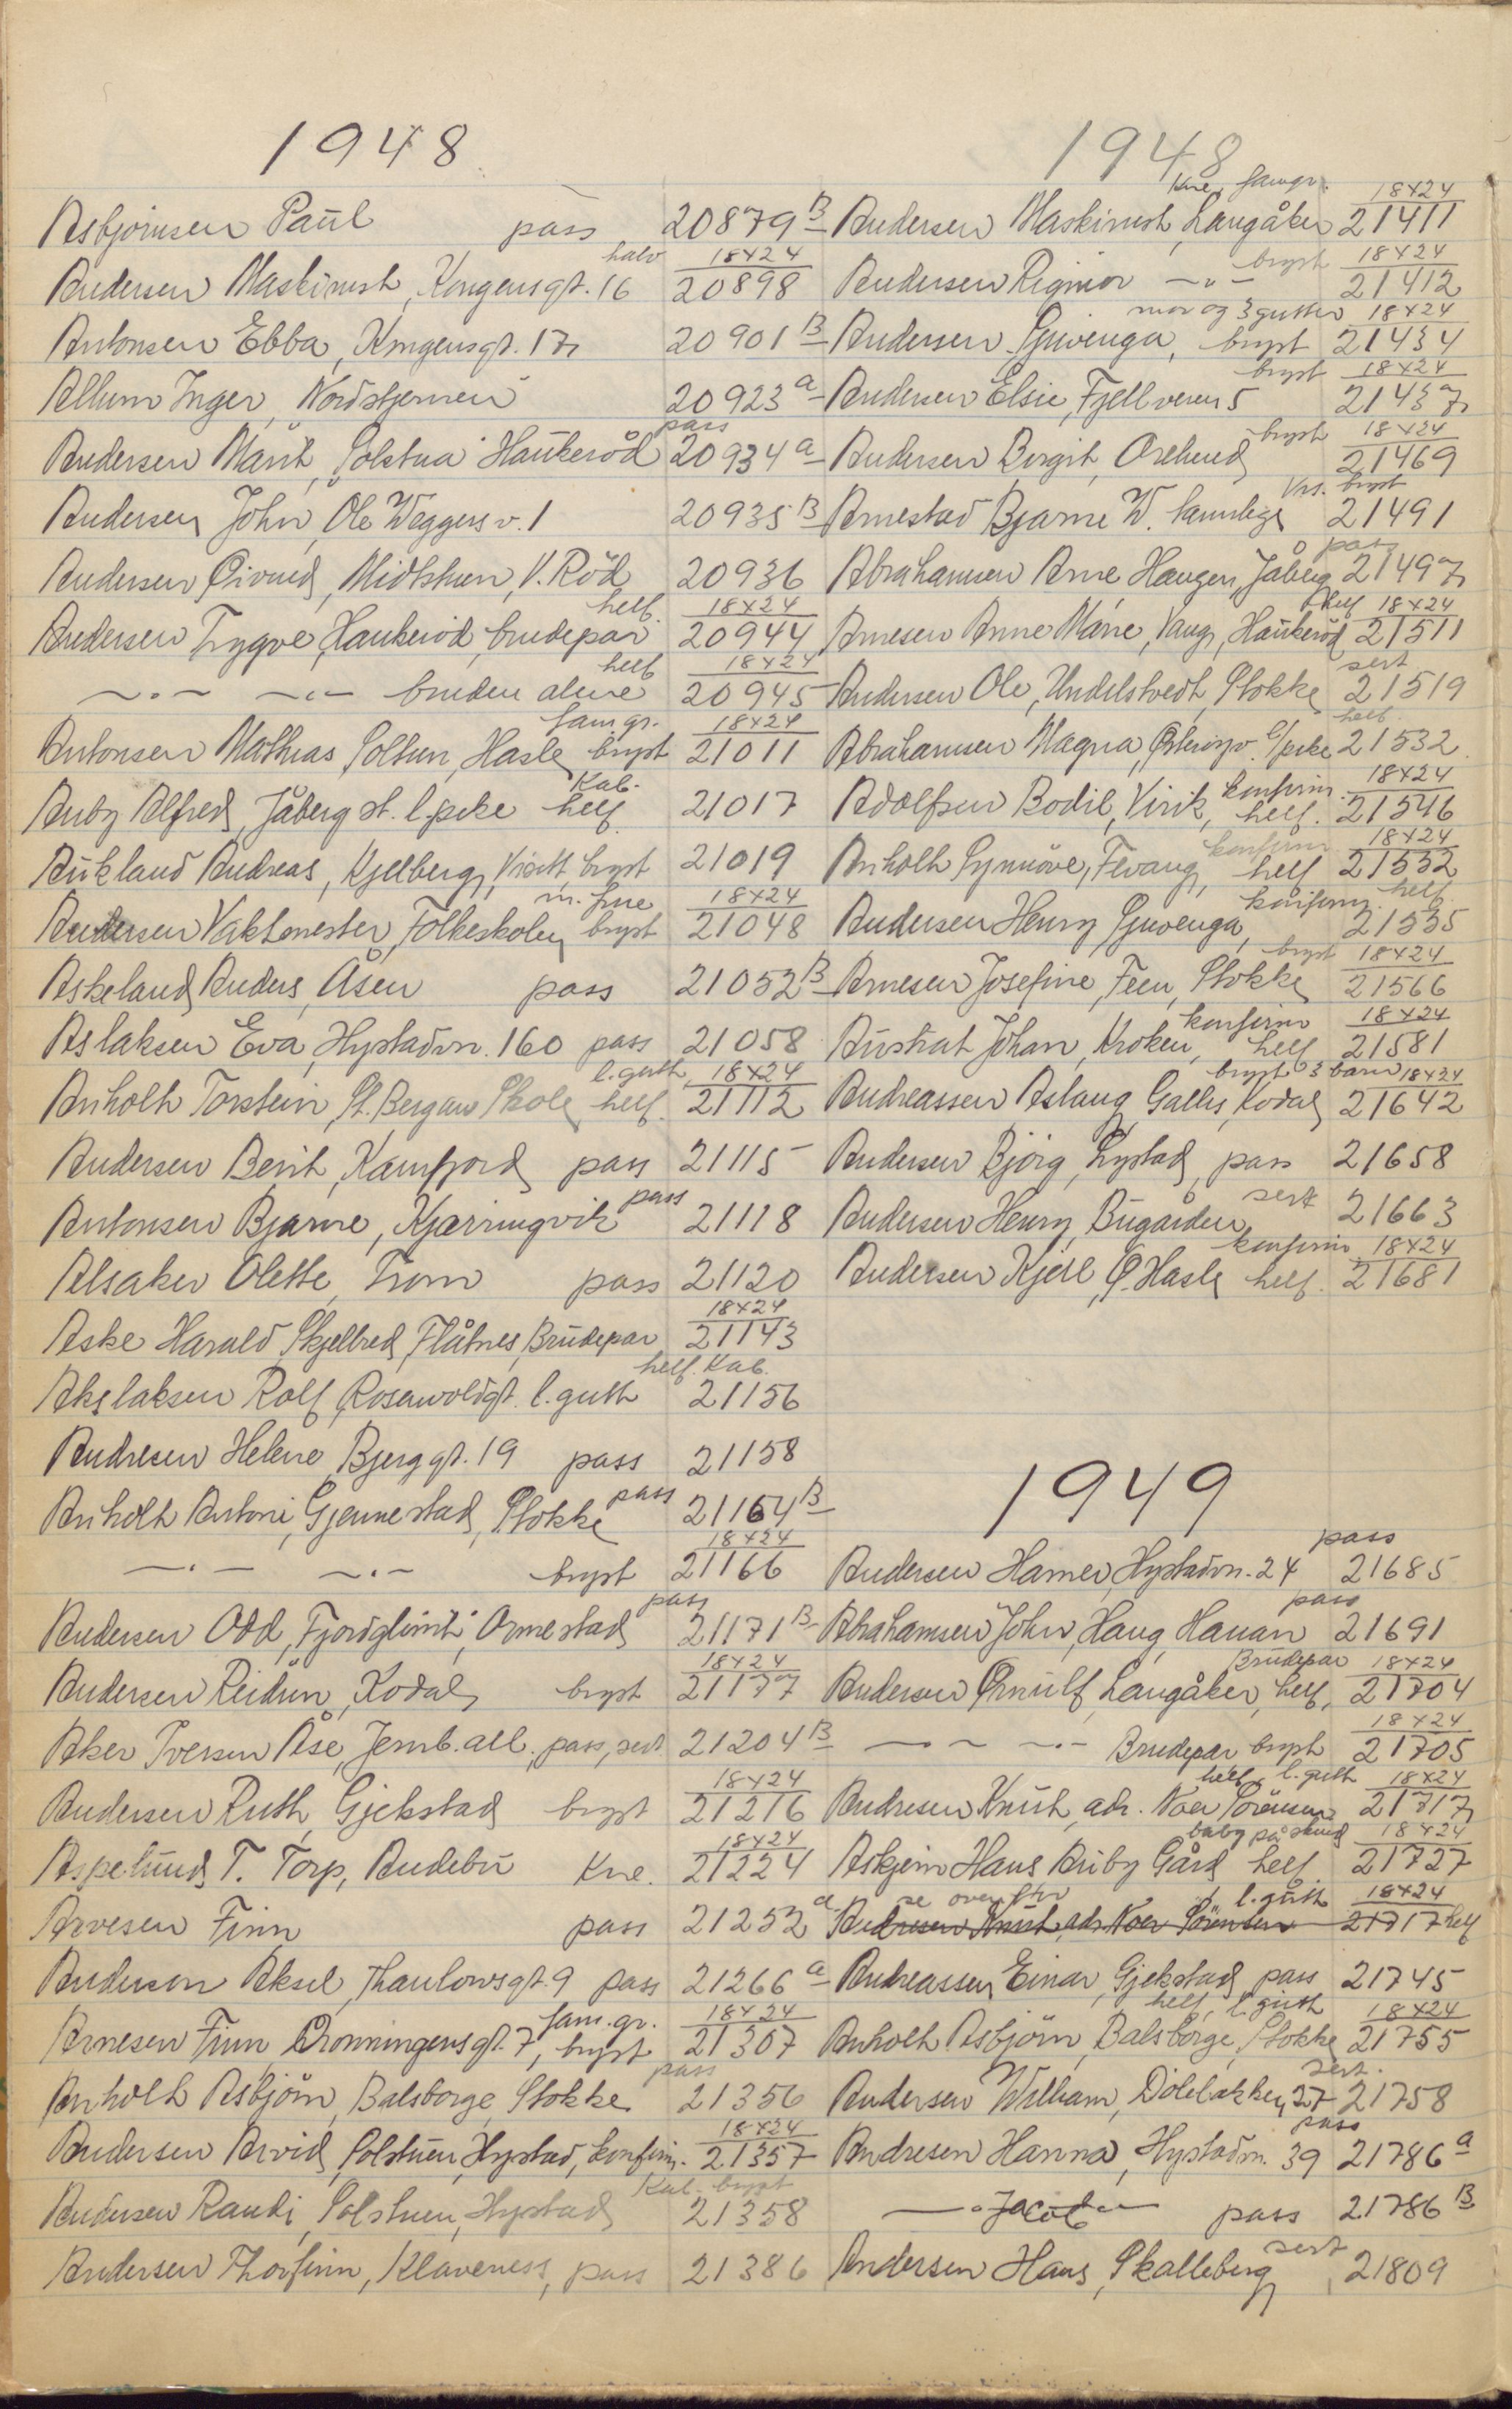 1948
Asbjörnsen Paul pass 20879 B
Andersen Maskinist, Kongensgt. 16 halv 18x24 20898
Antonsen Ebba, Kongensgt. 17 20901 B
Allum Inger, Nordstjernen 20923 a
Andersen Marit, Solstua Haukeröd pass 20934 a
Andersen John, Ole Weggers v. 1 20935 B
Andersen Öivind, Midtstuen, V. Röd 20936
Andersen Trygve, Haukeröd, brudepar helf. 18x24 20944
—〃— —〃— bruden alene helf 18x24 20945
Antonsen Mathias, Soltun, Hasle fam gr. bryst 18x24 21011
Auby Alfred, Jåberg st. l. pike Kab. helf 21017
Aukland Andreas, Kjellberg, Visitt, bryst 21019
Andersen Vaktmester, Folkeskolen m. frue bryst 18x24 21048
Askeland Anders, Åsen pass 21052 B
Aslaksen Eva, Hystadvn. 160 pass 21058
Anholt Torstein, St. Bergan Skole l. gutt, helf. 18x24 21112
Andersen Berit, Kamfjord pass 21115
Antonsen Bjarne, Kjærringvik pass 21118
Alsaker Olette, Trom pass 21120
Aske Harald, Skjelbred, Flåtnes, Brudepar 18x24 21143
Akslaksen Rolf, Rosenvoldgt. l. gutt helf. Kab. 21156
Andresen Helene, Bjerggt. 19 pass 21158
Anholt Antoni, Gjennestad, Stokke pass 21164 B
—〃— —〃— bryst 18x24 21166
Andersen Odd, "Fjordglimt", Ormestad pass 21171 B
Andersen Reidun, Kodal bryst 18x24 21177
Aker Iversen Åse, Jernb. all. pass, sert 21204 B
Andersen Ruth, Gjekstad bryst 18x24 21216
Aspelund T. Torp, Andebu Kne. 18x24 21224
Arvesen Finn pass 21252 a
Anderson Aksel, Thaulowsgt. 9 pass 21266 a
Arnesen Finn Dronningensgt. 7, fam. gr. bryst 18x24 21307
Anholt Asbjörn, Balsborge, Stokke pass 21356
Andersen Arvid, Solstuen, Hystad, konfirm. 18x24 21357
Andersen Randi, Solstuen, Hystad Kab. bryst 21358
Andersen Thorfinn, Klaveness, pass 21386
1948
Andersen Maskinist, Langåker Kne, famgr. 18x24 21411
Andersen Rigmor —〃— bryst 18x24 21412
Andersen, Gjuvenga, mor og 3 gutter bryst 18x24 21434
Andersen Elsie, Fjellveien 5 bryst 18x24 21437
Andersen Borgit, Orelund bryst 18x24 21469
Arnestad Bjarne W. tannlege Vis. bryst 21491
Abrahamsen Arne, Haugen, Jåberg pass 21497
Arnesen Anne Marie, Vang, Haukeröd helf 18x24 21511
Andersen Ole, Undelstvedt, Stokke sert 21519
Abrahamsen Magna, Österöyv. l/pike helf. 21532
Adolfsen Bodil, Virik, konfirm. helf. 18x24 21546
Anholt Synnöve, Fevang, konfirm. helf 18x24 21552
Andersen Henry Gjuvenga, konfirm. helf. 21535
Arnesen Josefine, Feen, Stokke bryst 18x24 21566
Austrat Johan, Kroken, konfirm helf 18x24 21581
Andreassen Aslaug, Gallis, Kodal bryst 3 barn 18x24 21642
Andersen Björg, Lystad, pass 21658
Andersen Henry, Bugården sert 21663
Andersen Kjell, Ö. Hasle konfirm helf. 18x24 21681
1949
Andersen Hamer, Hystadvn. 24 pass 21685
Abrahamsen John, Haug, Hauan pass 21691
Andersen Örnulf, Langåker, Brudepar helf, 18x24 21704
—〃— —〃— Brudepar bryst 18x24 21705
Andresen Knut, adr. Noer Sörensen helf, l. gutt 18x24 21717
Askjem Hans Auby Gård baby på skind helf 18x24 21727
Andresen Knut, adr. Noer Sörensen se ovenfor l. gutt 18x24 21717 helf
Andreassen Einar, Gjekstad pass 21745
Anholt Asbjörn, Balsborge, Stokke helf, l. gutt 18x24 21755
Andersen William, Dölebakken 27 sert. 21758
Andresen Hanna, Hystadvn. 39 pass 21786 a
—〃— Jacob —〃— pass 21786 B
Andersen Hans, Skalleberg sert 21809